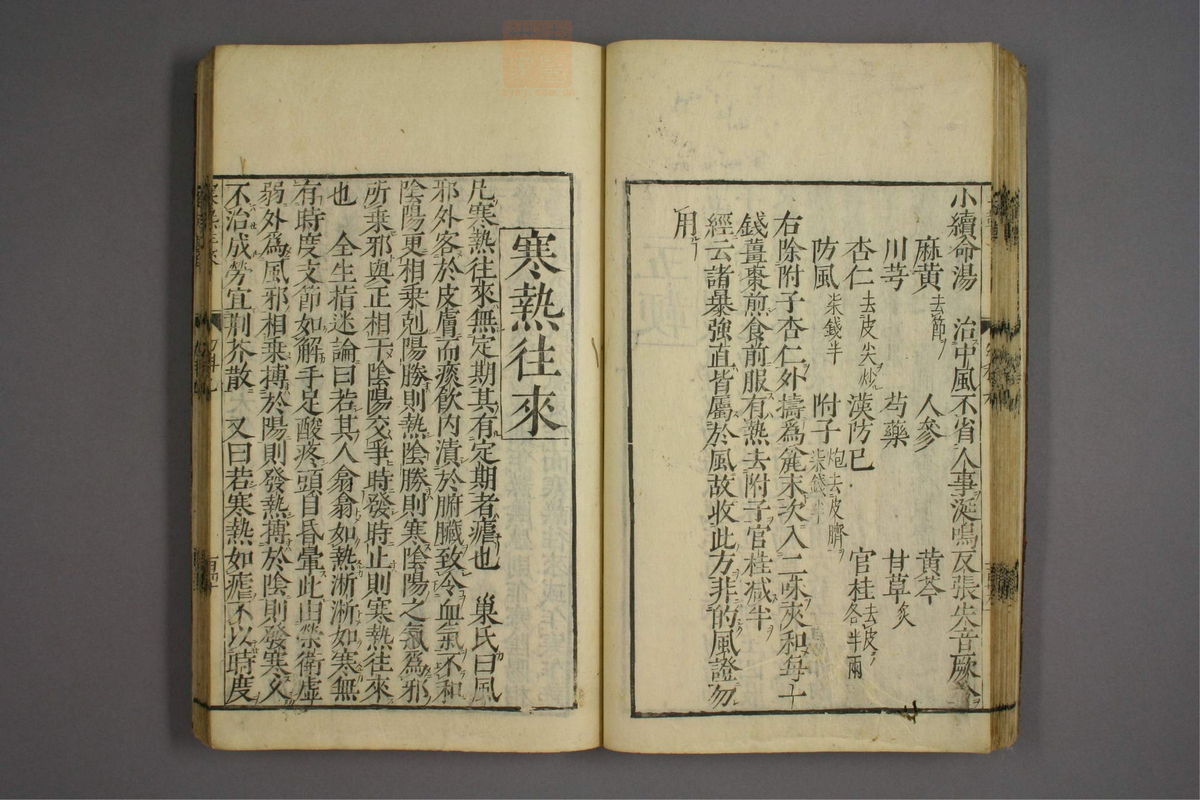 小續命湯　治中風不省人事涎鳴反張失音厥冷
麻黃去節　人參　黃芩
川芎　芍藥　甘草炙
杏仁去皮尖炒　漢防已　官桂去皮各半兩
防風柒錢半　附子炮去皮臍柒錢半
右除附子杏仁外擣為麄末次入二味夾和每十
錢薑棗煎食前服有熱去附子官桂減半
經云諸暴強直皆屬於風故收此方非的風證勿
用
寒熱往來
凡寒熱往來無定期其有定期者瘧也　巢氏曰風
邪外客於皮膚而痰飲內漬於腑臟致令血氣不和
陰陽更相乗剋陽勝則熱陰勝則寒陰陽之氣爲邪
所乗邪與正相干陰陽交爭時發時止則寒熱往來
也　全生指迷論曰若其人翕翕如熱淅淅如寒無
有時度支節如解手足酸疼頭目昏暈此由榮衛虛
弱外爲風邪相乗搏於陽則發熱搏於陰則發寒又
不治成勞宜荆芥散　又曰若寒熱如瘧不以時度